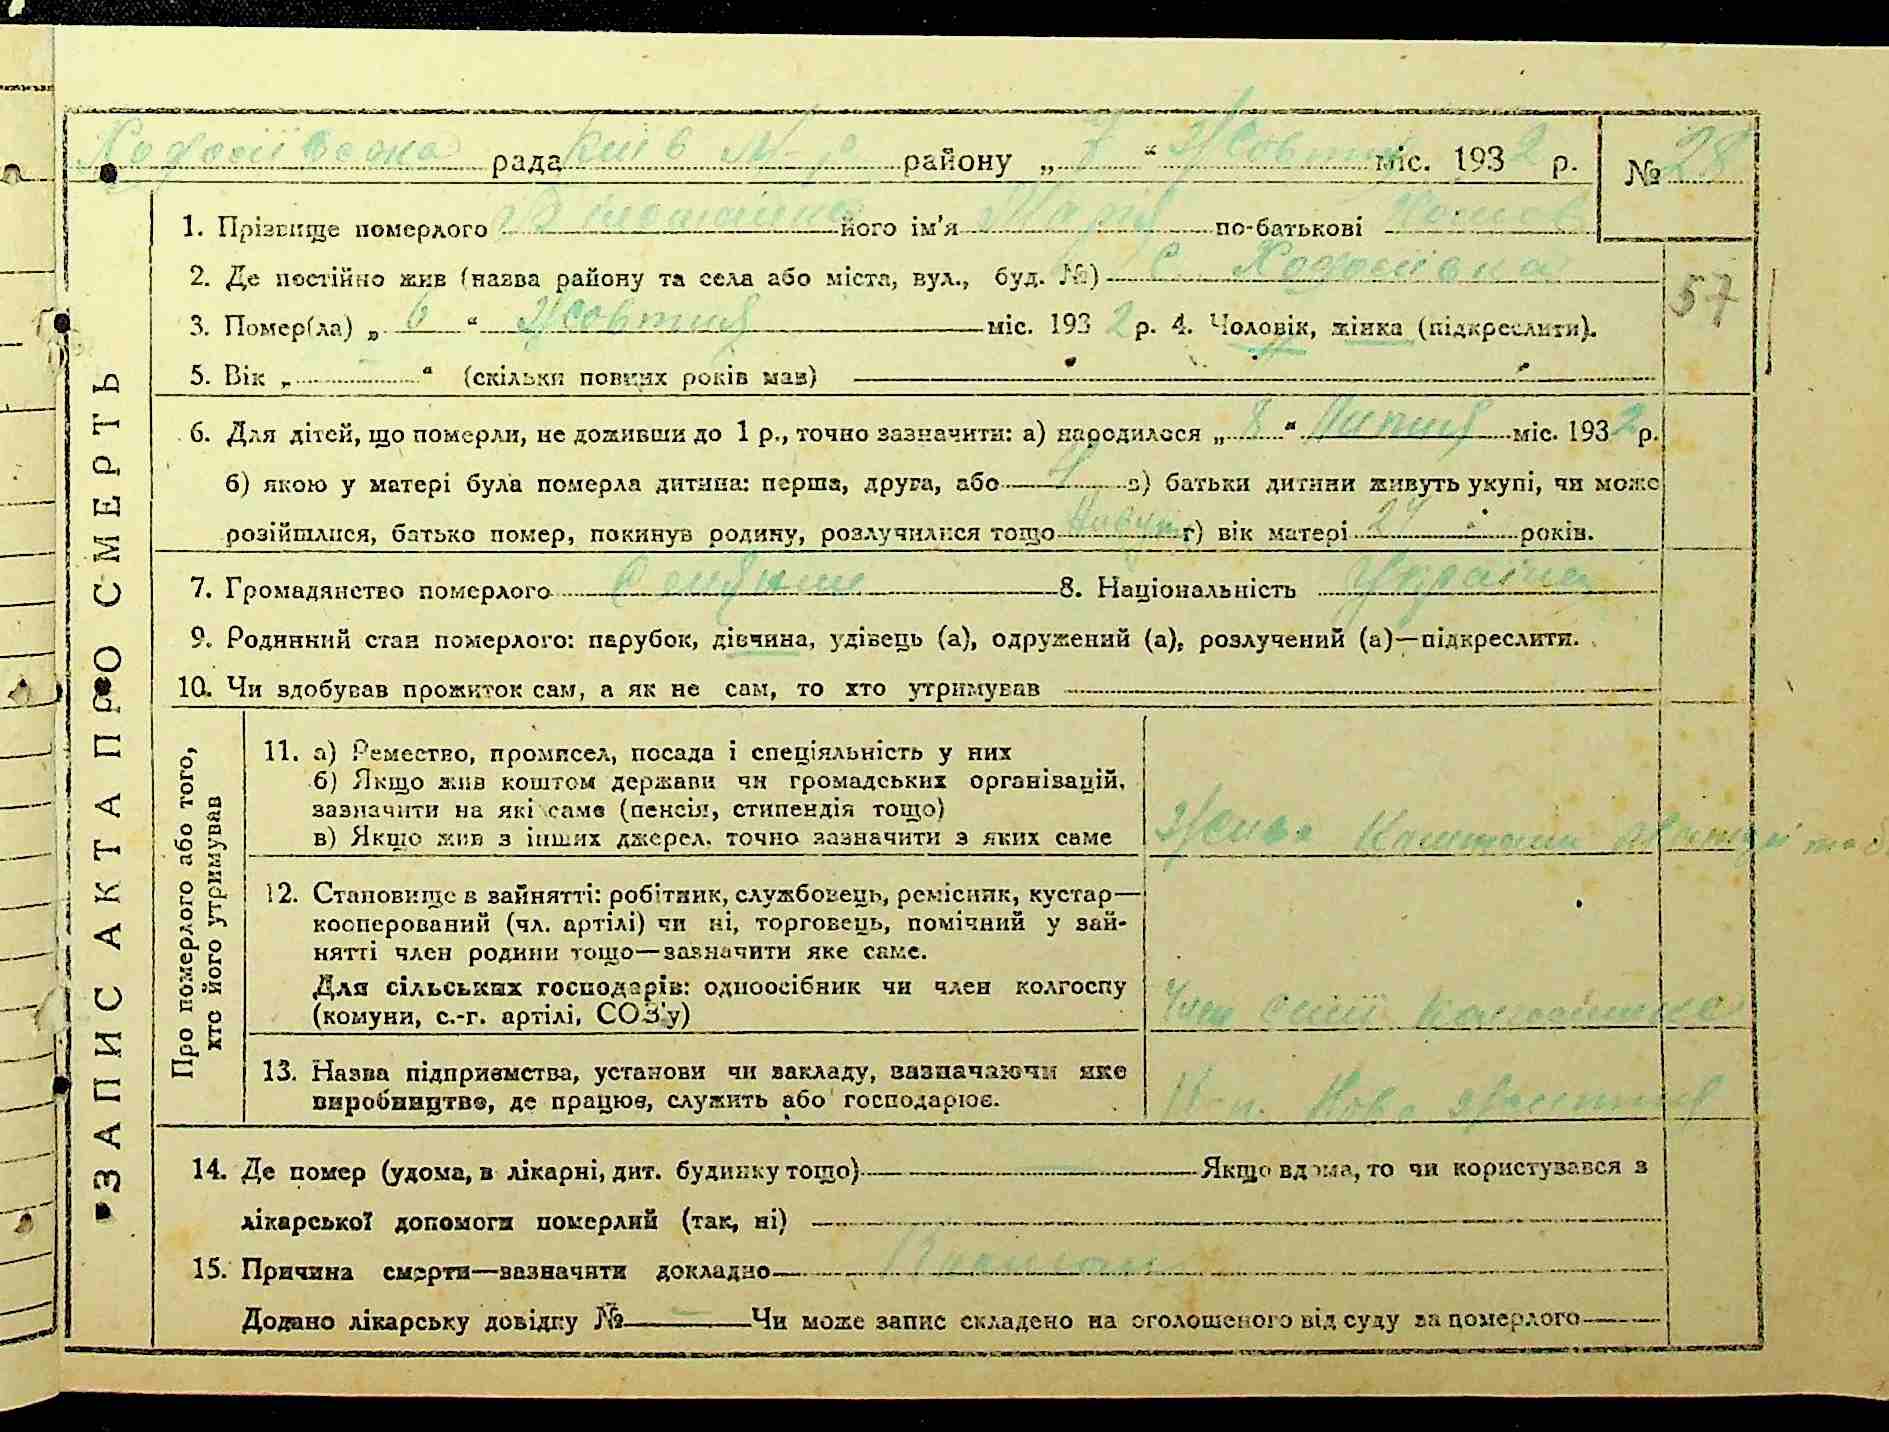 Ходосіївська рада Київ М-р району „ 7 “ Жовтня міс. 193 2 р. № 28
1. Прізвище померлого його ім'я Марія по-батькові
2. Де постійно жив (назва району та села або міста, вул., буд. №) с. Ходосіївка
57
3. Помер(ла) „ 6 “ Жовтня міс. 193 2 р. 4. Чоловік, жінка (підкреслити).
5. Вік „ “ (скільки повних років мав)
6. Для дітей, що померли, не доживши до 1 р., точно зазначити: а) народилося „ 8 “ Липня міс. 193 2 р.
б) якою у матері була померла дитина: перша, друга, або в) батьки дитини живуть укупі, чи може
розійшлися, батько помер, покинув родину, розлучилися тощо Живуть г) вік матері 24 років.
7. Громадянство померлого 8. Національність Україн
9. Родинний стан померлого: парубок, дівчина, удівець (а), одружений (а), розлучений (а)—підкреслити.
10. Чи здобував прожиток сам, а як не сам, то хто утримував
ЗАПИС АКТА ПРО СМЕРТЬ
Про померлого або того,
хто його утримував
11. а) Ремество, промисел, посада і спеціяльність у них
б) Якщо жив коштом держави чи громадських організацій,
зазначити на які саме (пенсія, стипендія тощо)
в) Якщо жив з інших джерел, точно зазначити з яких саме
Жива Коштами
12. Становище в зайнятті: робітник, службовець, ремісник, кустар—
кооперований (чл. артілі) чи ні, торговець, помічний у зай-
нятті член родини тощо—зазначити яке саме.
Для сільських господарів: одноосібник чи член колгоспу
(комуни, с.-г. артілі, СОЗ'у)
Член сімї колгоспника
13. Назва підприємства, установи чи закладу, зазначаючи яке
виробництво, де працює, служить або господарює.
Нове життя
14. Де помер (удома, в лікарні, дит. будинку тощо) Якщо вдома, то чи користувався з
лікарської допомоги померлий (так, ні)
15. Причина смерти—зазначити докладно
Додано лікарську довідку № — Чи може запис складено на оголошеного від суду за померлого